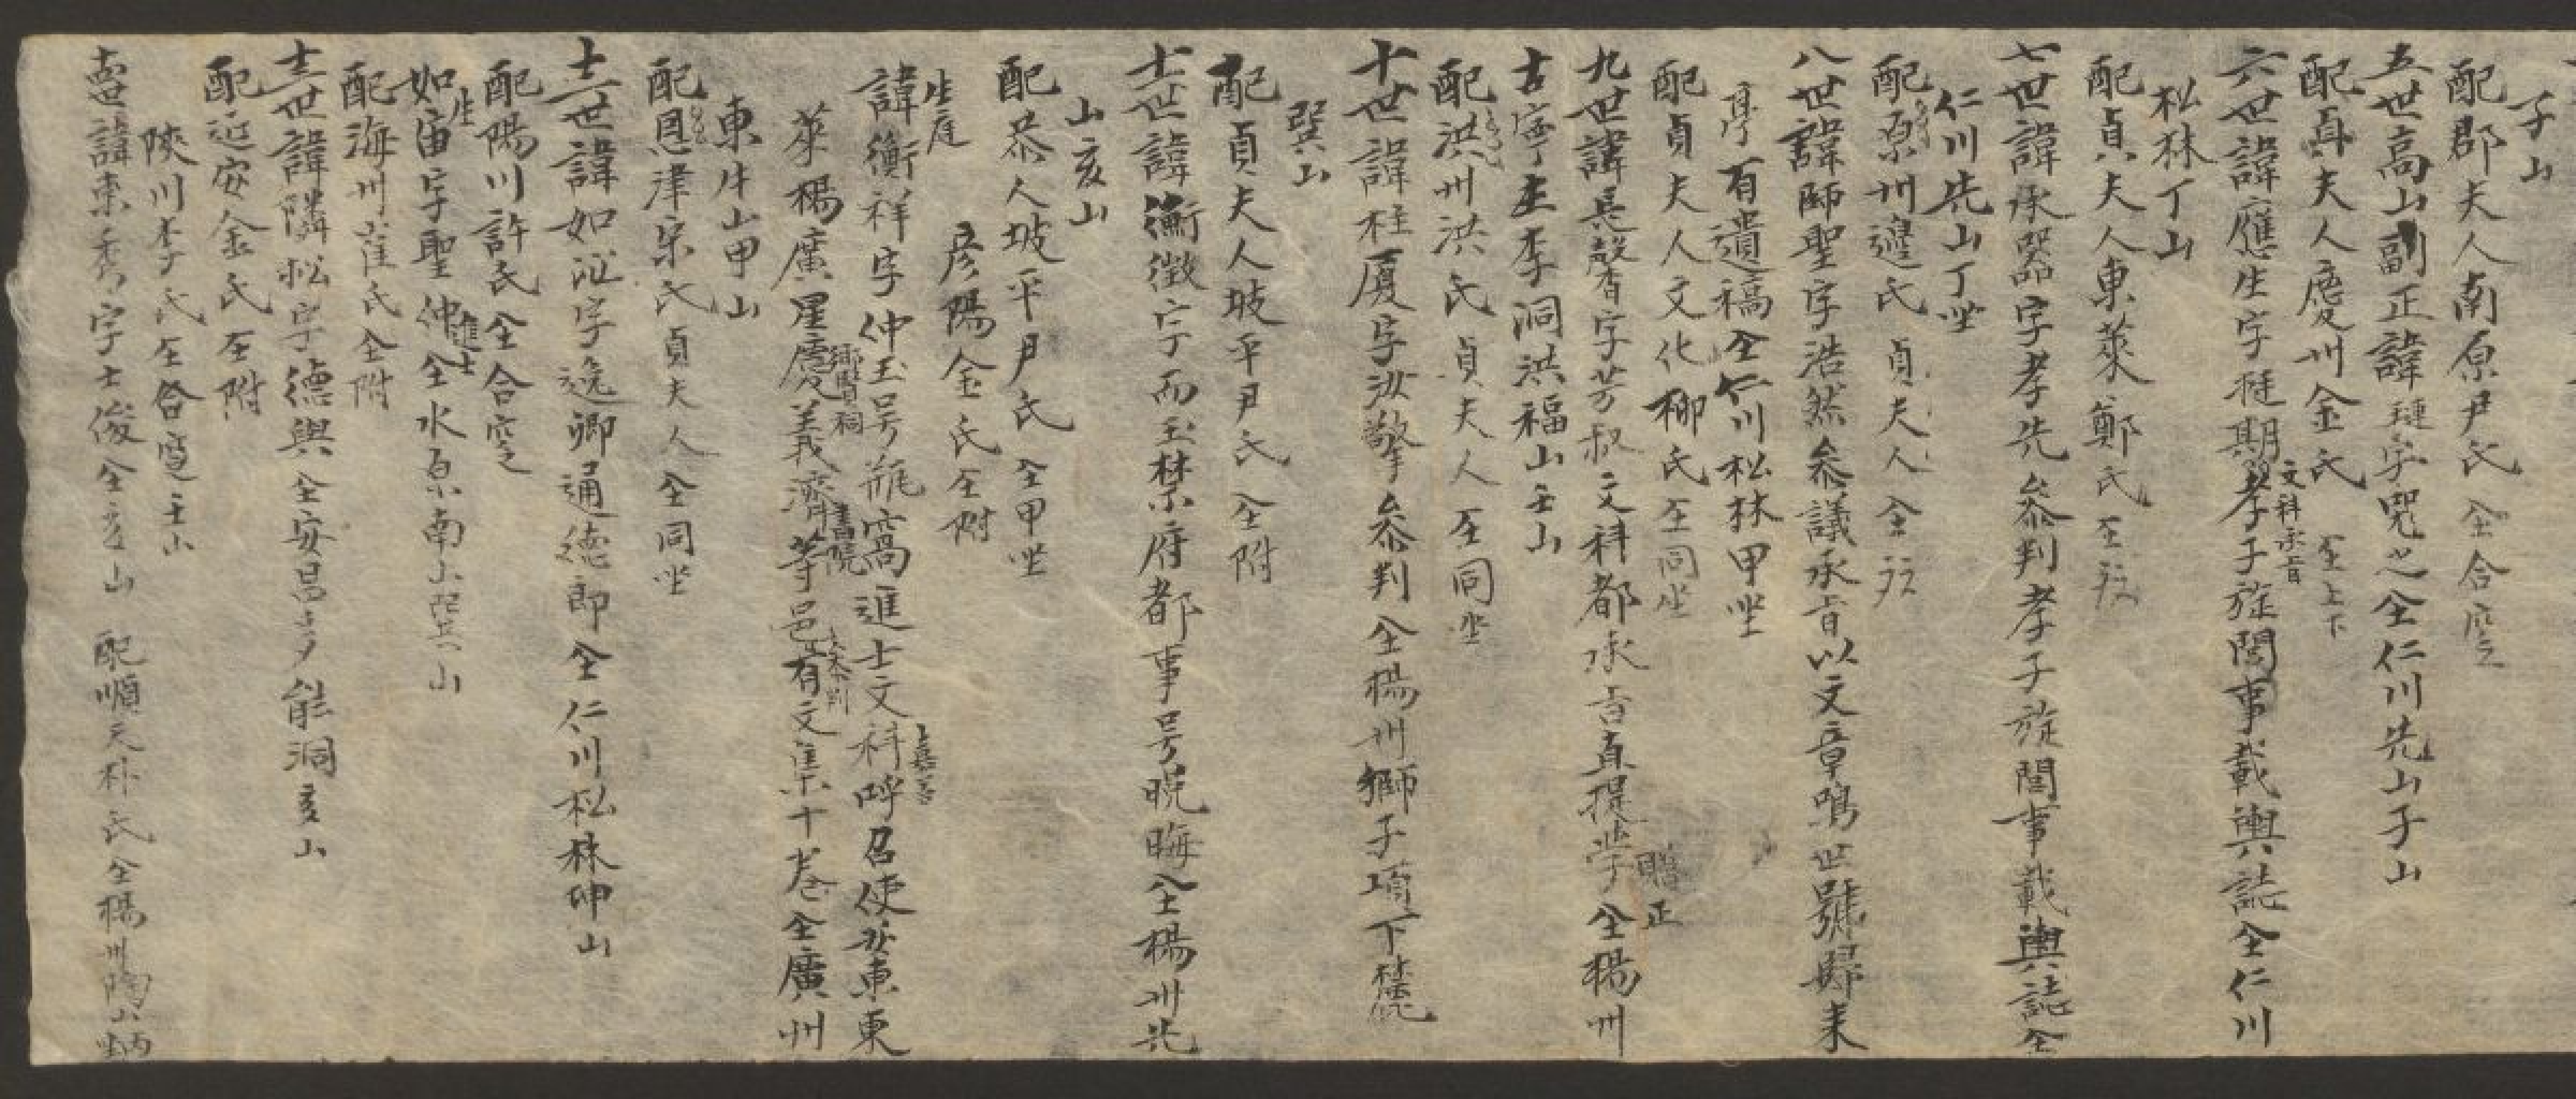 子山
配郡夫人南原尹氏仝合窆
五世高山副正諱璉字器之仝仁川先山子山
配貞夫人慶州金氏 墓上下
六世諱應生字挺期孝子旌閭事載輿誌仝仁川
文科承旨
松林丁山
配貞夫人東萊鄭氏
七世諱承器字孝先叅判孝子旌閭事載輿誌仝
仁川先山丁坐
配原州邊氏貞夫人仝
八世諱師聖字浩然叅議承旨以文章鳴世號歸来
亭有遺稿仝仁川松林甲坐
配貞夫人文化柳氏 同坐
九世諱長馨字芳叔文科都承旨直提學仝楊州
贈 正
古寧 李洞洪福山壬山
配洪州洪氏貞夫人 同坐
十世諱柱厦字汝擎叅判仝楊州獅子項下
巽山
配貞夫人坡平尹氏仝附
十一世諱衡徵字而玉禁府都事号晩晦仝楊州
山亥山
配恭人坡平尹氏仝甲坐
彦陽金氏 附
生庭
諱衡祥字仲玉号瓶窩進士文科 召使 東東
嘉善
萊楊廣星慶義濟等邑有文集十卷仝廣州
鄉賢祠 書院
東牛山甲山
配恩津宋氏貞夫人仝同坐
十二世諱如沚字逸卿通德郎仝仁川松林坤山
配陽川許氏仝合窆
生
如宙字聖仲仝水原南山巽山
進士
配海州崔氏仝附
十三世諱隣松字德興仝安昌 能洞亥山
配延安金氏 附
陜川李氏 合窆壬山
十四世諱東秀字士俊仝亥山 配順天朴氏仝楊州陶山